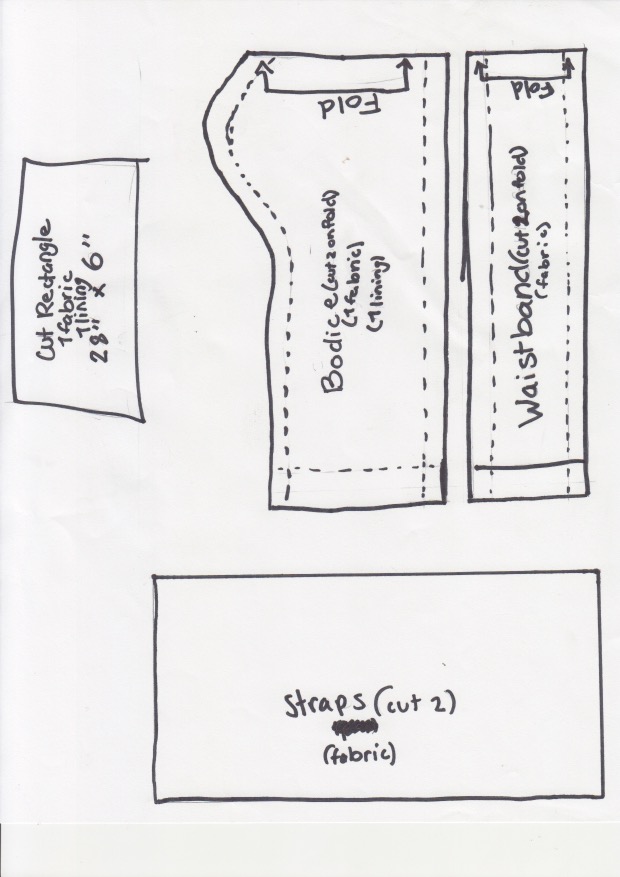 Cut Rectangle
1 fabric
1 lining
28" x 6"
Fold
Bodice (cut 2 on fold)
(1 fabric)
(1 lining)
Fold
Waistband (cut 2 on fold)
(fabric)
Straps (cut 2)
(fabric)